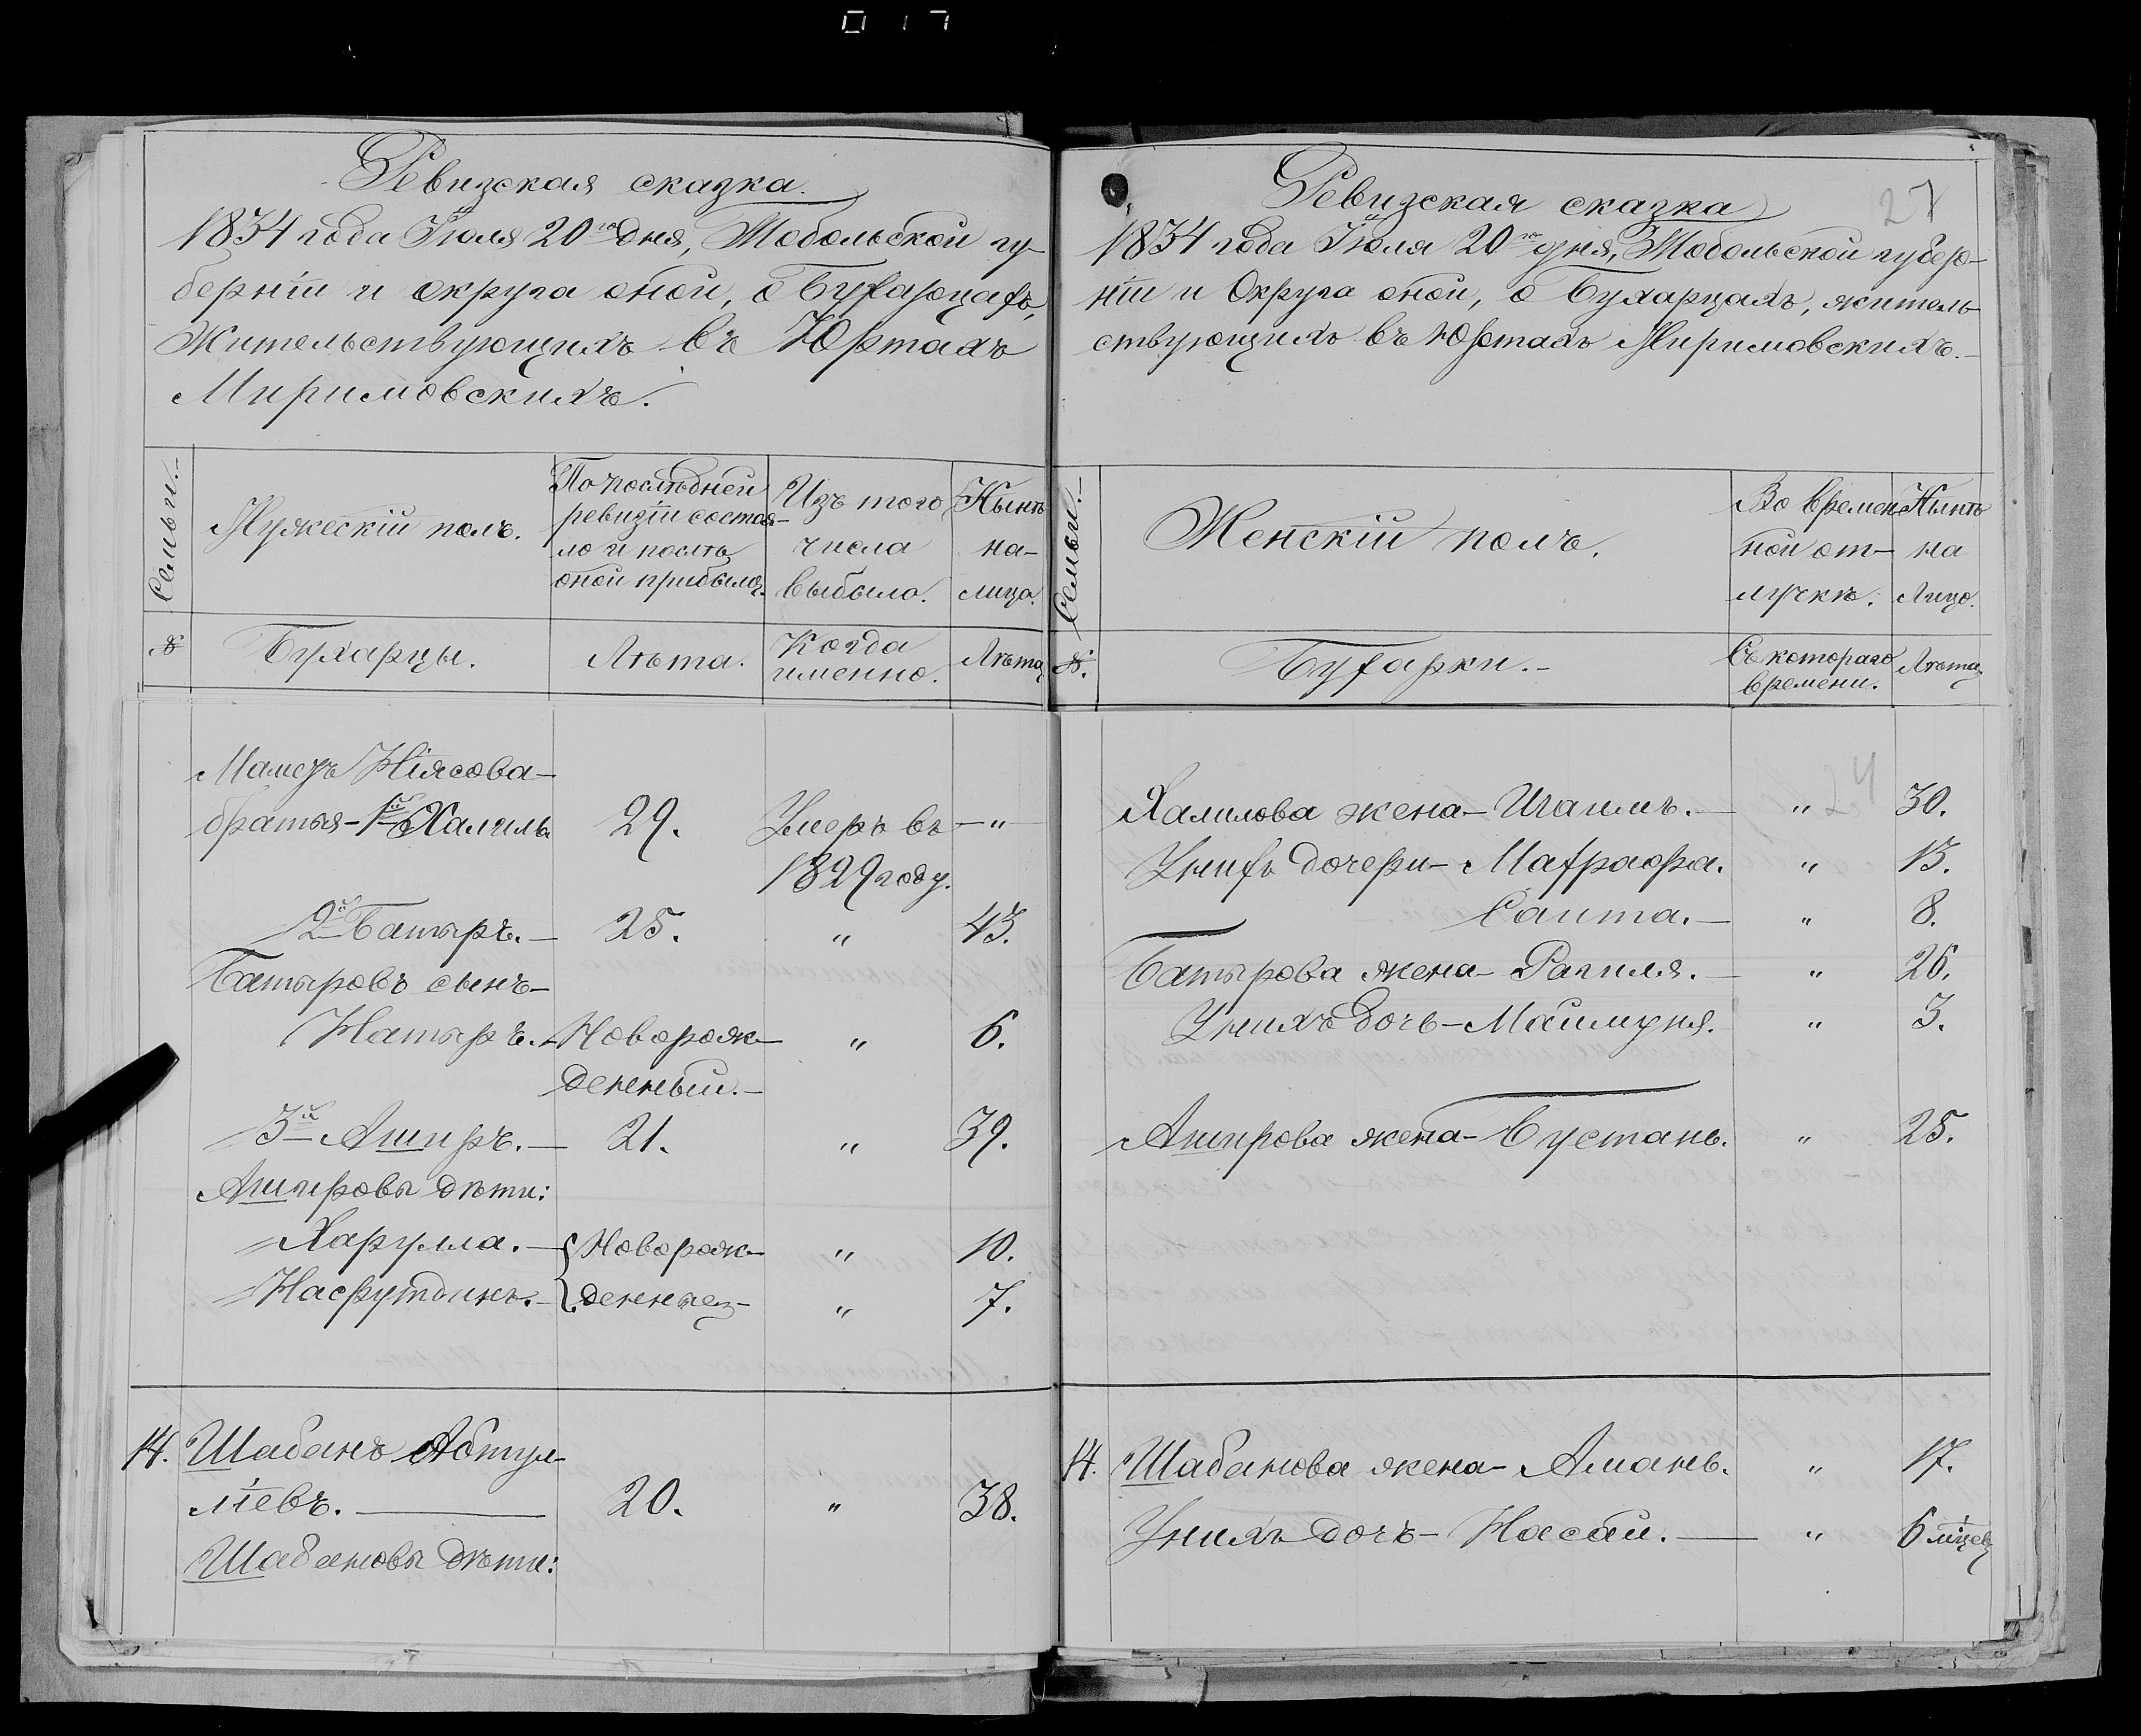 017
Ревизская сказка.
1834 года Іюля 20го дня, Тобольской гу-
берніи и округа оной, о Бухарцахъ,
Жительствующихъ въ Юртахъ
Миримовскихъ.
Семьи.
Мужескій полъ.
По послѣдней
ревизіи состоя-
ло и послѣ
оной прибыло.
Изъ того
числа
выбыло.
Нынѣ
на-
лицо.
№
Бухарцы.
Лѣта.
Когда
именно.
Лѣта
Маметъ Ніясова
братья - 1й Халилъ 29. Умеръ въ — "
1829 году.
2й Батыръ. — 25. " 43.
Батыровъ сынъ —
Натыръ. — Новорож- " 6.
денный. —
3й Аширъ. — 21. " 39.
Ашировы дѣти:
Харулла. — Новорож- " 10.
Насрутдинъ. — денные — " 7.
14. Шабанъ Абтул-
ліевъ. — 20. " 38.
Шабановы дѣти:
27
Ревизская сказка
1834 года Іюля 20го дня, Тобольской губер-
ніи и Округа оной, о Бухарцахъ, житель-
ствующихъ въ Юртахъ Миримовскихъ. —
Семьи. —
Женскій полъ.
Во времен-
ной от-
лучкѣ.
Нынѣ
на
Лицо.
№.
Бухарки. —
Съ котораго
времени.
Лѣта
24
Халилова жена — Игаимъ. — " 30.
Унихъ дочери — Мафраора. " 13.
Саита. — " 8.
Батырова жена — Рагиля. — " 26.
Унихъ дочь — Маймуня. " 3.
Аширова жена — Бустань. " 25.
14. Шабанова жена — Амань. " 17.
Унихъ дочь — Насби. — " 6 міцевъ